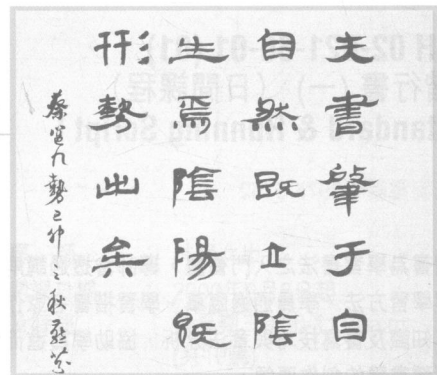 夫書肇于自
自然既立陰
生焉陰陽既
形勢出矣
蔡邕九勢己卯之秋